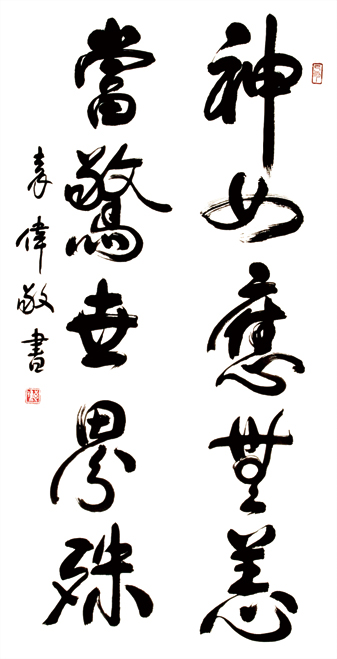 神女應無恙
當驚世界殊
袁偉敬書